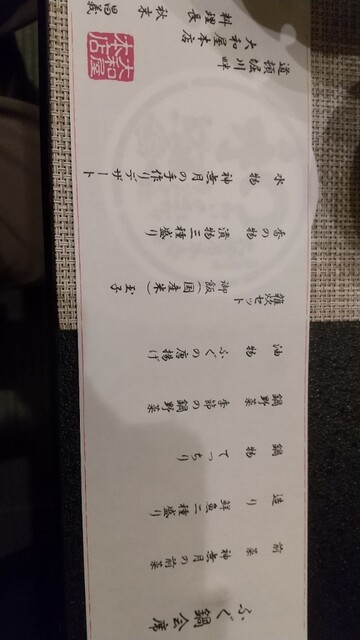 ふぐ鍋会席
前菜　神無月の前菜
造り　鮮魚二種盛り
鍋物　てっちり
鍋野菜　季節の鍋野菜
油物　ふぐの唐揚げ
雑炊セット　御飯（国産米）玉子
香の物　漬物三種盛り
水物　神無月の手作りデザート
道頓堀川畔
大和屋本店
料理長　秋末昌義
大和屋
本店